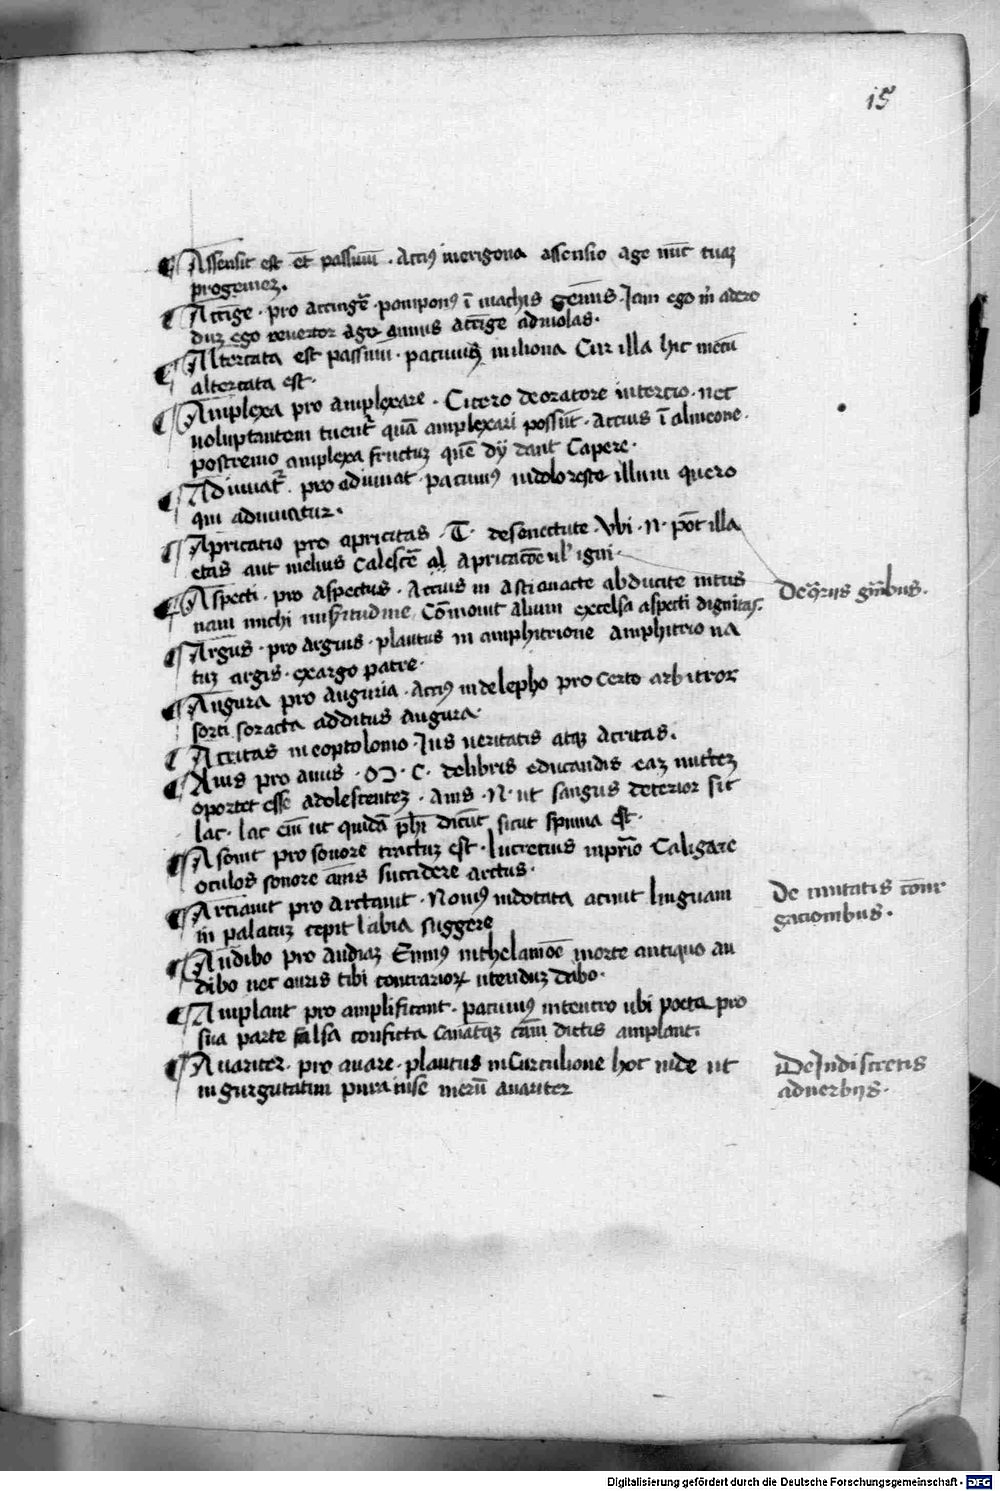 15
¶ Assensit est et̄ passiuū · Acciꝰ inerigona assensio age nūc tuaꝫ
progeniez.
¶ Accīge · pro accingẽ · pomponiꝰ ī machis geniūs · Jam ego m̄
duꝫ ego reuertor age animus accīge aduiolas ·
¶ Altercata est passiuū · pacuuiꝰ miliona Cur illa hic mecū
altercata est ·
¶ Amplexa pro amplexare · Cicero deoratore intercio · nec
uoluptantem tuent̃ quā amplexari possūt · Accius ī alineone ·
postremo amplexa fructuꝫ quē dÿ dant Capere ·
¶ Adiuuat̃ · pro adiuuat · pacuuiꝰ indoloreste illum quero
qui adiuuatur ·
¶ Apricatio pro apricitas · T · desenectute · Vbi · n · pōt illa
etas aut melius calescē apricacōe ul' igni ·
¶ Aspecti · pro aspectus · Accius in astianacte abducite intus
nam michi Cōmouit alium excelsa aspecti dignitas ·
De gñibus ·
¶ Argus · pro argiuus · plautus in amphitrione amphitrio na
tuꝫ argis · exargo patre ·
¶ Augura pro auguria · Acciꝰ indelepho pro certo arbitror
sorti soracta additus augura ·
¶ Acritas ineoptolomo · Jus ueritatis atqꝫ acritas ·
¶ Auis pro auus · C · delibris educandis eaꝫ nutceꝫ
oportet esse adolescenteꝫ · Auis · N · ut sangus deterior sit
lac · lac em̄ ut quidā ph̄i dicūt sicut spuma est ·
¶ Asonit pro sonore tractuꝫ est · lucretius inprīo Caligare
oculos sonore ām̄s succidere arctus ·
¶ Artiauit pro arctauit · Nouiꝰ indotata acnut linguam
in palatuꝫ cepit labia suggere
De mutatis coniu
gacionibus ·
¶ Audibo pro audiaꝫ Enniꝰ inthelamōe morte antiquo au
dibo nec auris tibi contrarioꝝ utenduꝫ dabo ·
¶ Amplant pro amplificant · pacuuiꝰ inteucro ubi poeta pro
sua parte falsa conficta canātqꝫ cām dictis amplant ·
¶ Auariter · pro auare · plautus in Curculione hoc uide ut
ingurgutatim pura inse merū auariter
De Indiscretis
aduerbijs ·
Digitalisierung gefördert durch die Deutsche Forschungsgemeinschaft · DFG